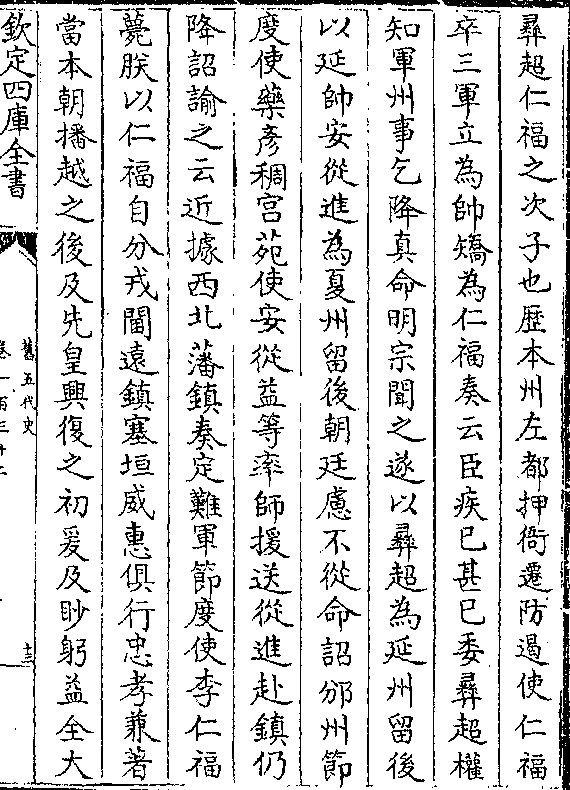 彛超仁福之次子也歴本州左都押衙遷防遏使仁福
卒三軍立為帥矯為仁福奏云臣疾已甚已委彛超權
知軍州事乞降真命明宗聞之遂以彛超為延州留後
以延帥安從進為夏州留後朝廷慮不從命詔邠州節
度使藥彦稠宫苑使安從益等率師援送從進赴鎮仍
降詔諭之云近據西北藩鎮奏定難軍節度使李仁福
薨朕以仁福自分戎閫逺鎮塞垣威惠俱行忠孝兼著
當本朝播越之後及先皇興復之初爰及眇躬益全大
欽定四庫全書
舊五代史
卷一百三十二
十三